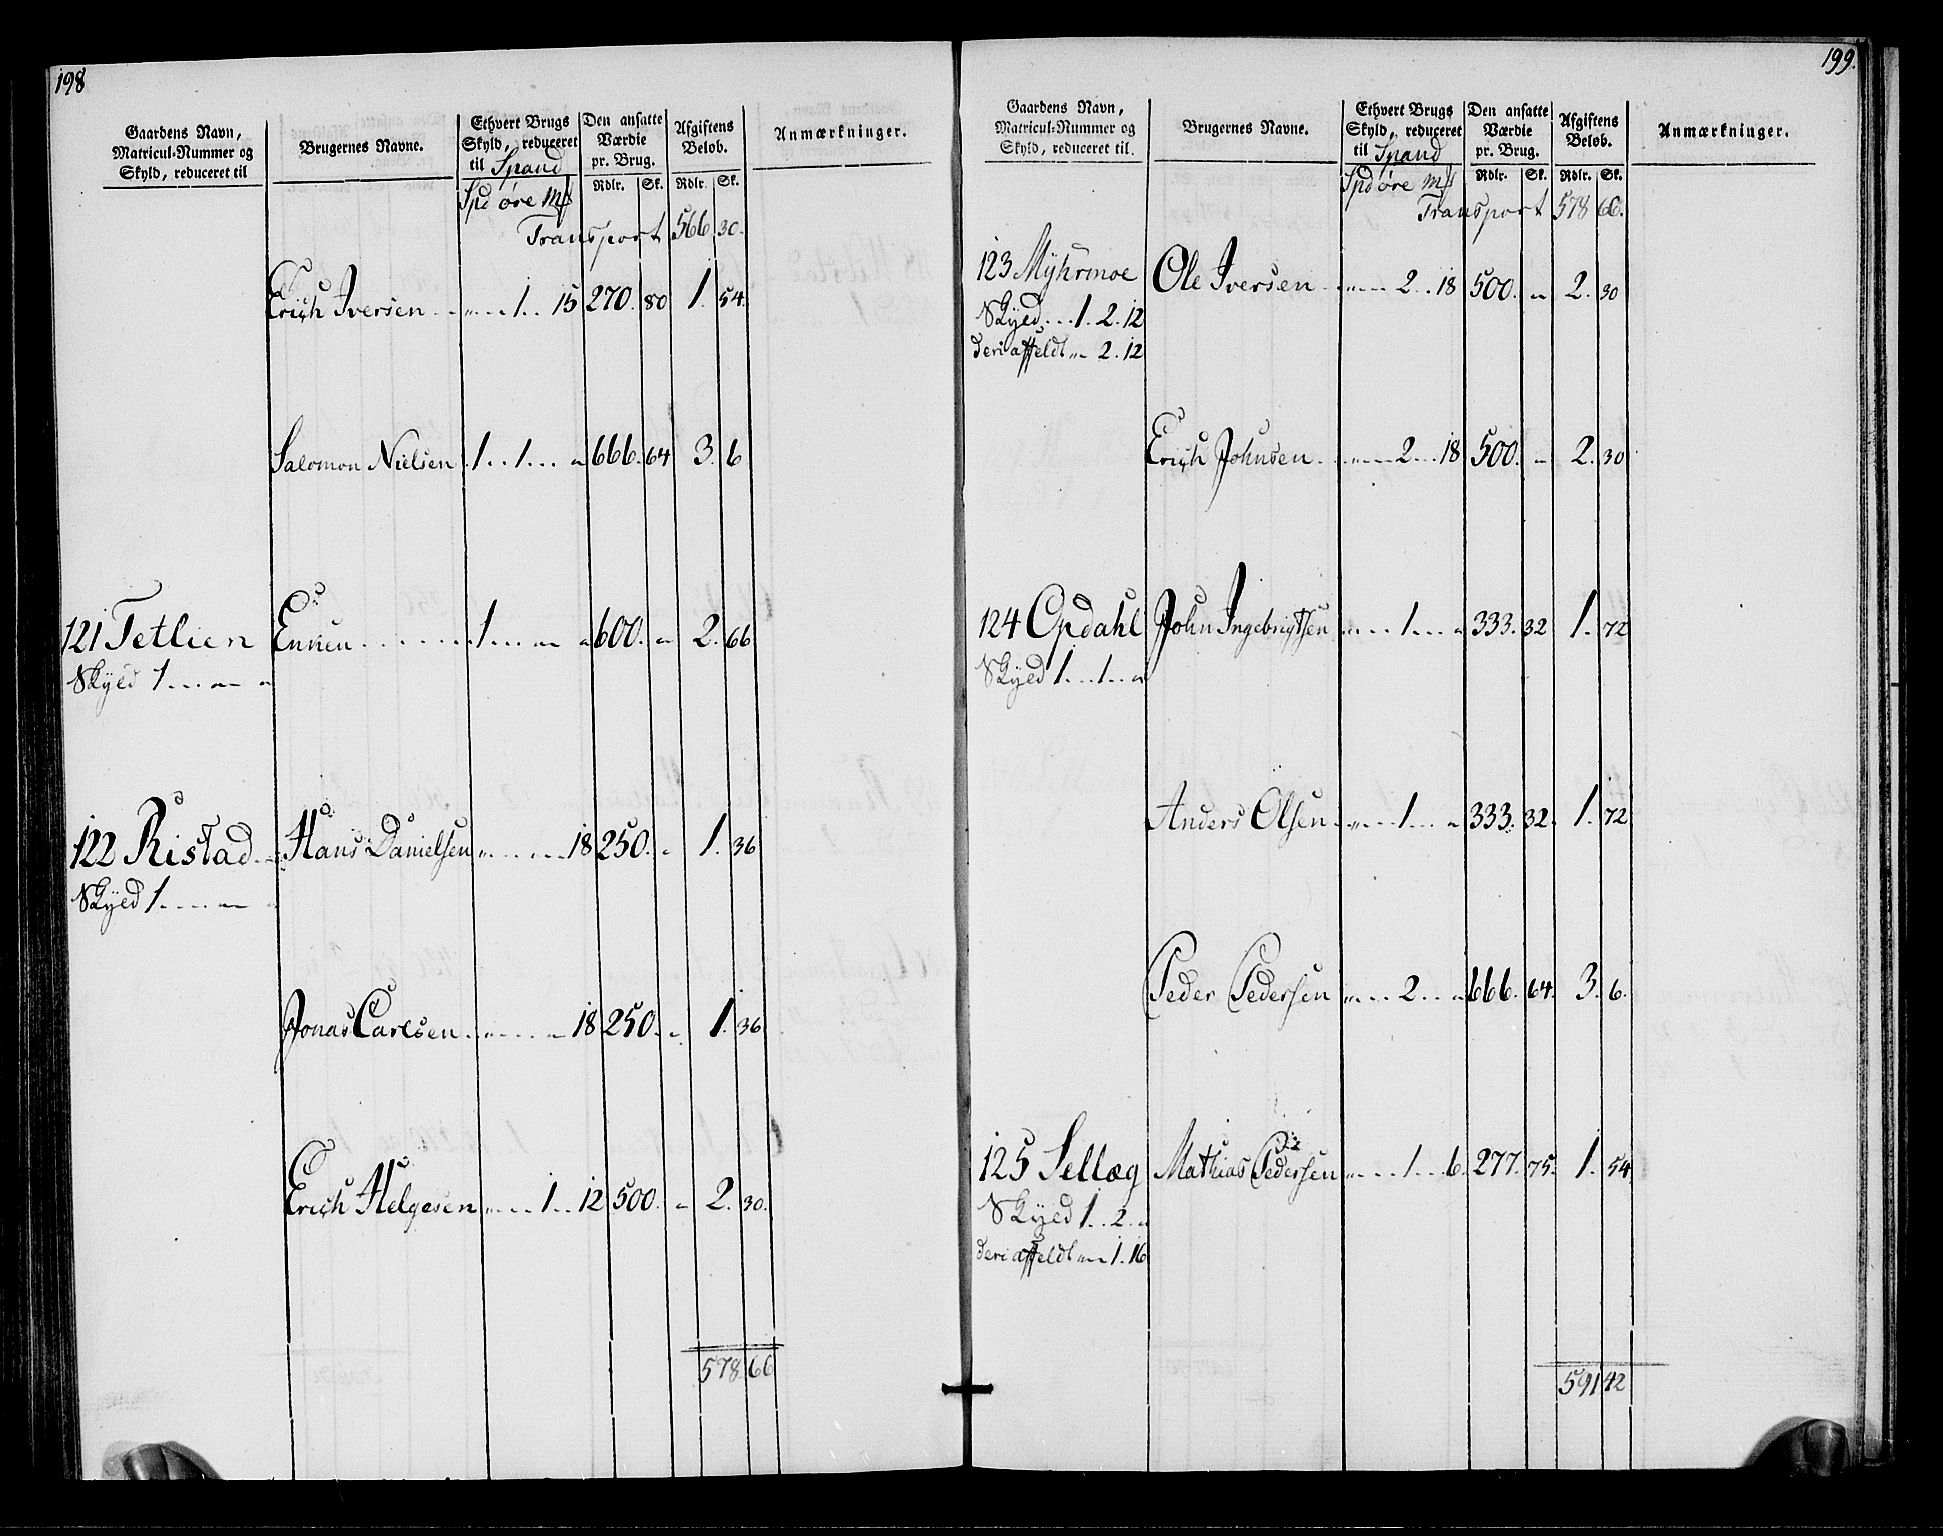 198
Gaardens Navn,
Matricul-Nummer og
Skyld, reduceret til
Brugernes Navne.
Ethvert Brugs
Skyld, reduceret
til Spand
Den ansatte
Værdie
pr. Brug.
Afgiftens
Beløb.
Anmærkninger.
Spd øre mſ
Rdlr. Sk. Rdlr. Sk.
Transport 566 30.
Erich Iversen „ 1 15 270. 80 1. 54.
Salomon Nielsen 1 1 „ 666. 64 3. 6
121 Tetlien Enken 1 „ „ 600. „ 2. 66
Skyld 1 „ „
122 Ristad Hans Danielsen „ „ 18 250. „ 1. 36
Skyld 1 „ „
Jonas Carlsen „ „ 18 250. „ 1. 36
Erich Helgesen „ 1 12 500. „ 2. 30.
578. 66
199.
Gaardens Navn,
Matricul-Nummer og
Skyld, reduceret til.
Brugernes Navne.
Ethvert Brugs
Skyld, reduceret
til Spand
Den ansatte
Værdie
pr. Brug.
Afgiftens
Beløb.
Anmærkninger.
Spd øre mſ
Rdlr. Sk. Rdlr. Sk.
Transport 578 66.
123 Myhrmoe Ole Iversen „ 2 18 500. „ 2. 30
Skyld 1. 2. 12
deri affeldt „ 2. 12
Erich Johnsen „ 2 18 500. „ 2. 30
124 Opdahl John Ingebrigtsen „ 1 „ 333. 32 1. 72
Skyld 1 1 „
Anders Olsen „ 1 „ 333. 32. 1. 72
Peder Pedersen „ 2 „ 666. 64. 3. 6.
125 Sellæg Mathias Pedersen „ 1 6. 277. 75. 1. 54
Skyld 1 2 „
deri affeldt „ 1. 16
591 42